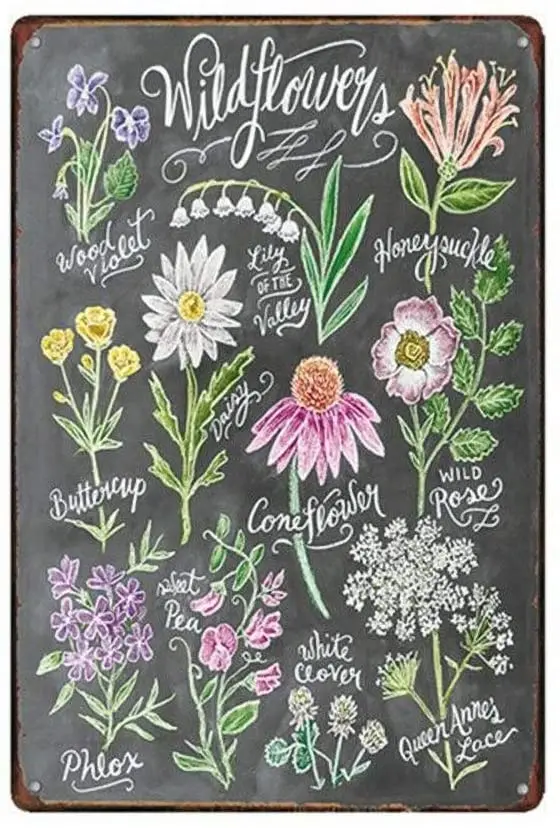 Wildflowers
Wood
Violet
Lily
OF THE
Valley
Honeysuckle
Buttercup
Daisy
Coneflower
WILD
Rose
Sweet
Pea
White
Clover
Phlox
Queen Anne's
Lace